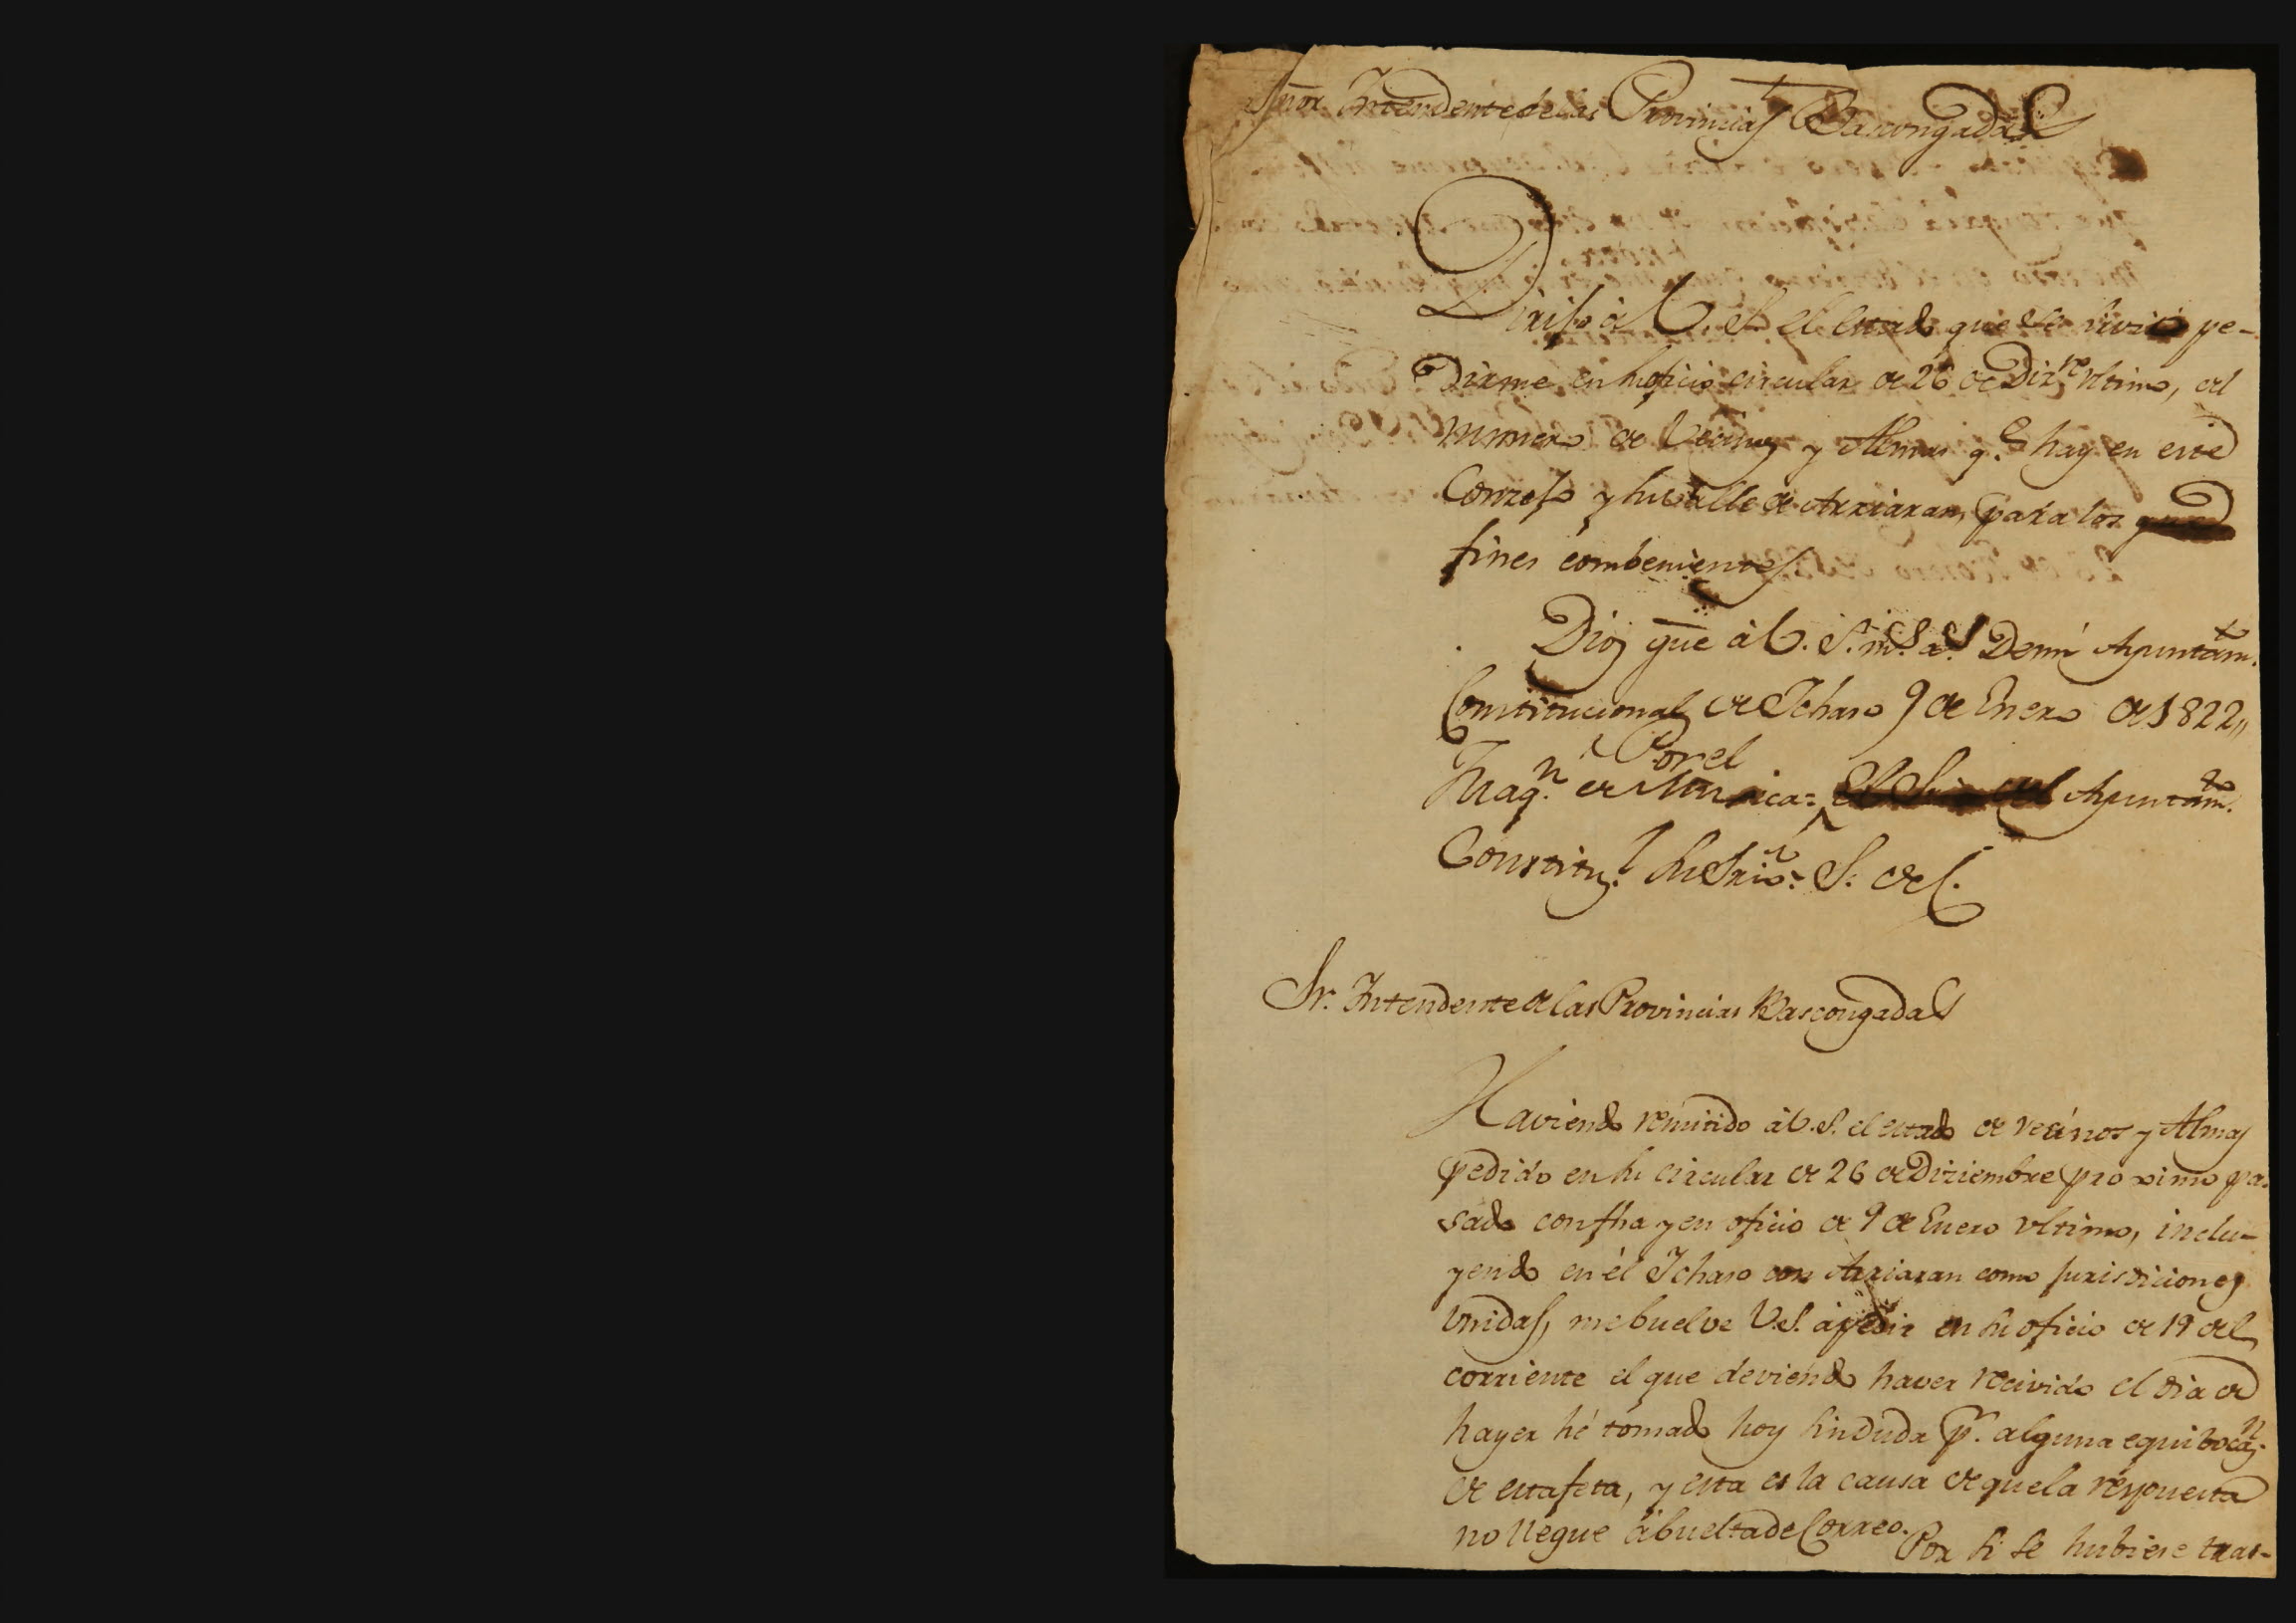 Señor Intendente de las Provincias Bascongadas
Dirijo à V. S. el estado que se sirvió pe-
dirme en su oficio circular de 26 de Diz.re vltimo, del
numero de Vecinos y Almas q.e hay en este
Conzejo y su valle de Arriaran, para los que
fines combenientes.
Dios gue à V. S. m.s a.s De mi Ayuntam.to
Constitucional de Ichaso 9 de Enero de 1822,,
Por el
Juaq.n de Muxica= El Srio del Ayuntam.to
Constituz.l su Srio= S. del.
Sr. Intendente de las Provincias Bascongadas
Haviendo remitido à V.S. el estado de vecinos y Almas
pedido en su circular de 26 de Diziembre proximo pa-
sado con fha y en oficio de 9 de Enero vltimo, inclu-
yendo en èl Ichaso con Arriaran como jurisdiciones
vnidas, me buelve V.S. à pedir en su oficio de 19 del
corriente el que deviendo haver recivido el dia de
hayer hé tomado hoy sin duda p.r alguna equibocaz.n
de estafeta, y esta es la causa de que la respuesta
no llegue à buelta de Correo. Por si se hubiese tras-